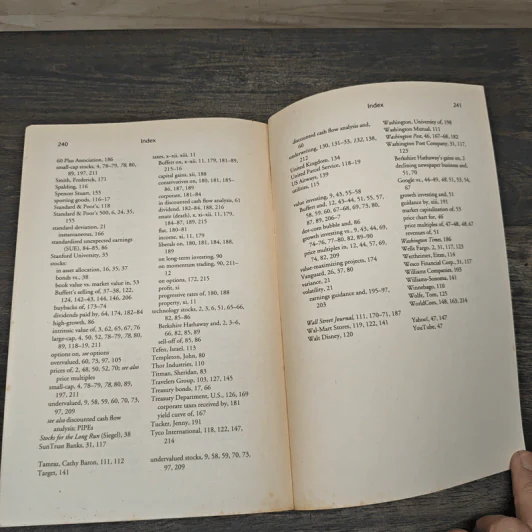 240
Index
60 Plus Association, 186
small-cap stocks, 4, 78–79, 78, 80,
89, 197, 211
Smith, Frederick, 171
Spalding, 116
Spencer Stuart, 155
sporting goods, 116–17
Standard & Poor's, 118
Standard & Poor's 500, 6, 24, 35,
155
standard deviation, 21
instantaneous, 166
standardized unexpected earnings
(SUE), 84–85, 86
Stanford University, 35
stocks:
in asset allocation, 16, 35, 37
bonds vs., 38
book value vs. market value in, 53
Buffett's selling of, 37–38, 122,
124, 142–43, 144, 146, 206
buybacks of, 173–74
dividends paid by, 64, 174, 182–84
high-growth, 86
intrinsic value of, 3, 62, 65, 67, 76
large-cap, 4, 50, 52, 78–79, 78, 80,
89, 118–19, 211
options on, see options
overvalued, 60, 73, 97, 103
prices of, 2, 48, 50, 52, 70; see also
price multiples
small-cap, 4, 78–79, 78, 80, 89,
197, 211
undervalued, 9, 58, 59, 60, 70, 73,
97, 209
see also discounted cash flow
analysis; PIPEs
Stocks for the Long Run (Siegel), 38
SunTrust Banks, 31, 117
Tamraz, Cathy Baron, 111, 112
Target, 141
taxes, x–xii, xiii, 11
Buffett on, x–xii, 11, 179, 181–89,
215–16
capital gains, xii, 188
conservatives on, 180, 181, 185–
86, 187, 189
corporate, 181–84
in discounted cash flow analysis, 61
dividend, 182–84, 188, 216
estate (death), x, xi–xii, 11, 179,
184–87, 189, 215
flat, 180–81
income, xi, 11, 179
liberals on, 180, 181, 184, 188,
189
on long-term investing, 90
on momentum trading, 90, 211–
12
on options, 172, 215
profit, xi
progressive rates of, 180, 188
property, xi, 11
technology stocks, 2, 3, 6, 51, 65–66,
82, 85–86
Berkshire Hathaway and, 2, 3–6,
66, 82, 85, 89
sell-off of, 85, 86
Tefen, Israel, 113
Templeton, John, 80
Thor Industries, 110
Titman, Sheridan, 83
Travelers Group, 103, 127, 143
Treasury bonds, 17, 66
Treasury Department, U.S., 126, 169
corporate taxes received by, 181
yield curve of, 167
Tucker, Jenny, 191
Tyco International, 118, 122, 147,
214
undervalued stocks, 9, 58, 59, 70, 73,
97, 209
Index
241
discounted cash flow analysis and,
60
underwriting, 130, 131–33, 132, 138,
212
United Kingdom, 134
United Parcel Service, 118–19
US Airways, 139
utilities, 115
value investing, 9, 43, 55–58
Buffett and, 12, 43–44, 51, 55, 57,
58, 59, 60, 67–68, 69, 73, 80,
87, 89, 206–7
dot-com bubble and, 86
growth investing vs., 9, 43, 44, 69,
74–76, 77–80, 82, 89–90
price multiples in, 12, 44, 57, 69,
74, 82, 209
value-maximizing projects, 174
Vanguard, 26, 37, 80
variance, 21
volatility, 21
earnings guidance and, 195–97,
203
Wall Street Journal, 111, 170–71, 187
Wal-Mart Stores, 119, 122, 141
Walt Disney, 120
Washington, University of, 198
Washington Mutual, 111
Washington Post, 46, 167–68, 182
Washington Post Company, 31, 117,
125
Berkshire Hathaway's gains on, 2
declining newspaper business and,
51, 70
Google vs., 44–49, 48, 51, 53, 54,
67
growth investing and, 51
guidance by, xiii, 191
market capitalization of, 53
price chart for, 46
price multiples of, 47–48, 48, 67
revenues of, 51
Washington Times, 186
Wells Fargo, 2, 31, 117, 123
Wertheimer, Eitan, 116
Wesco Financial Corp., 31, 117
Williams Companies, 103
Williams-Sonoma, 141
Winnebago, 110
Wolfe, Tom, 125
WorldCom, 148, 163, 214
Yahoo!, 47, 147
YouTube, 47